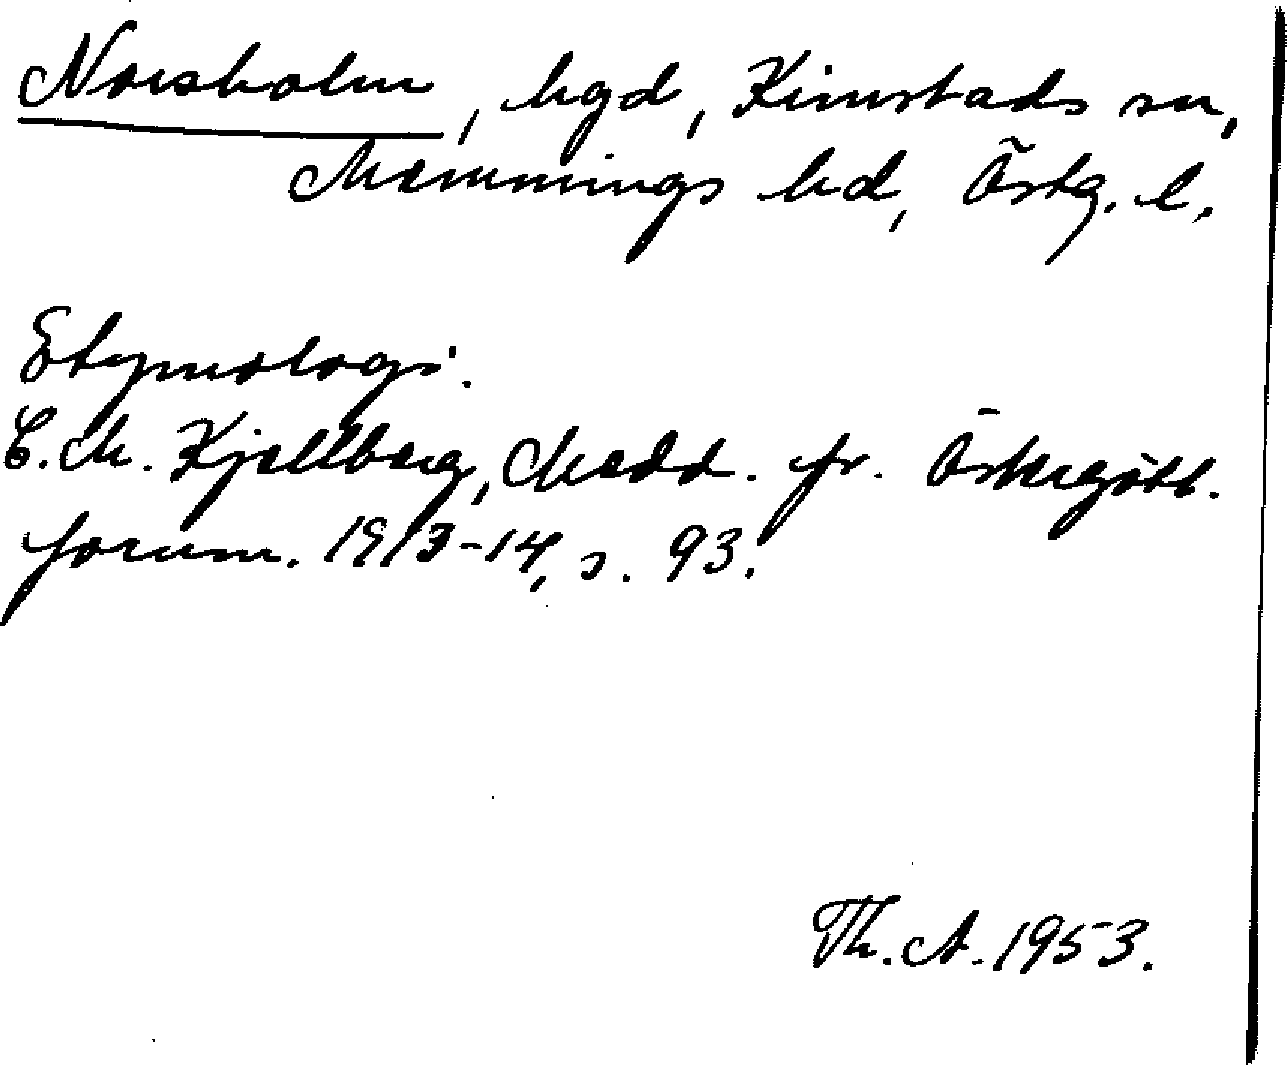 Norsholm, hgd, Kimstads sn,
Memmings hd, Östg. l.
Etymologi.
C. M. Kjellberg, Medd. fr. Östergötl.
fornm. 1913-14, s. 93.
Th. A. 1953.